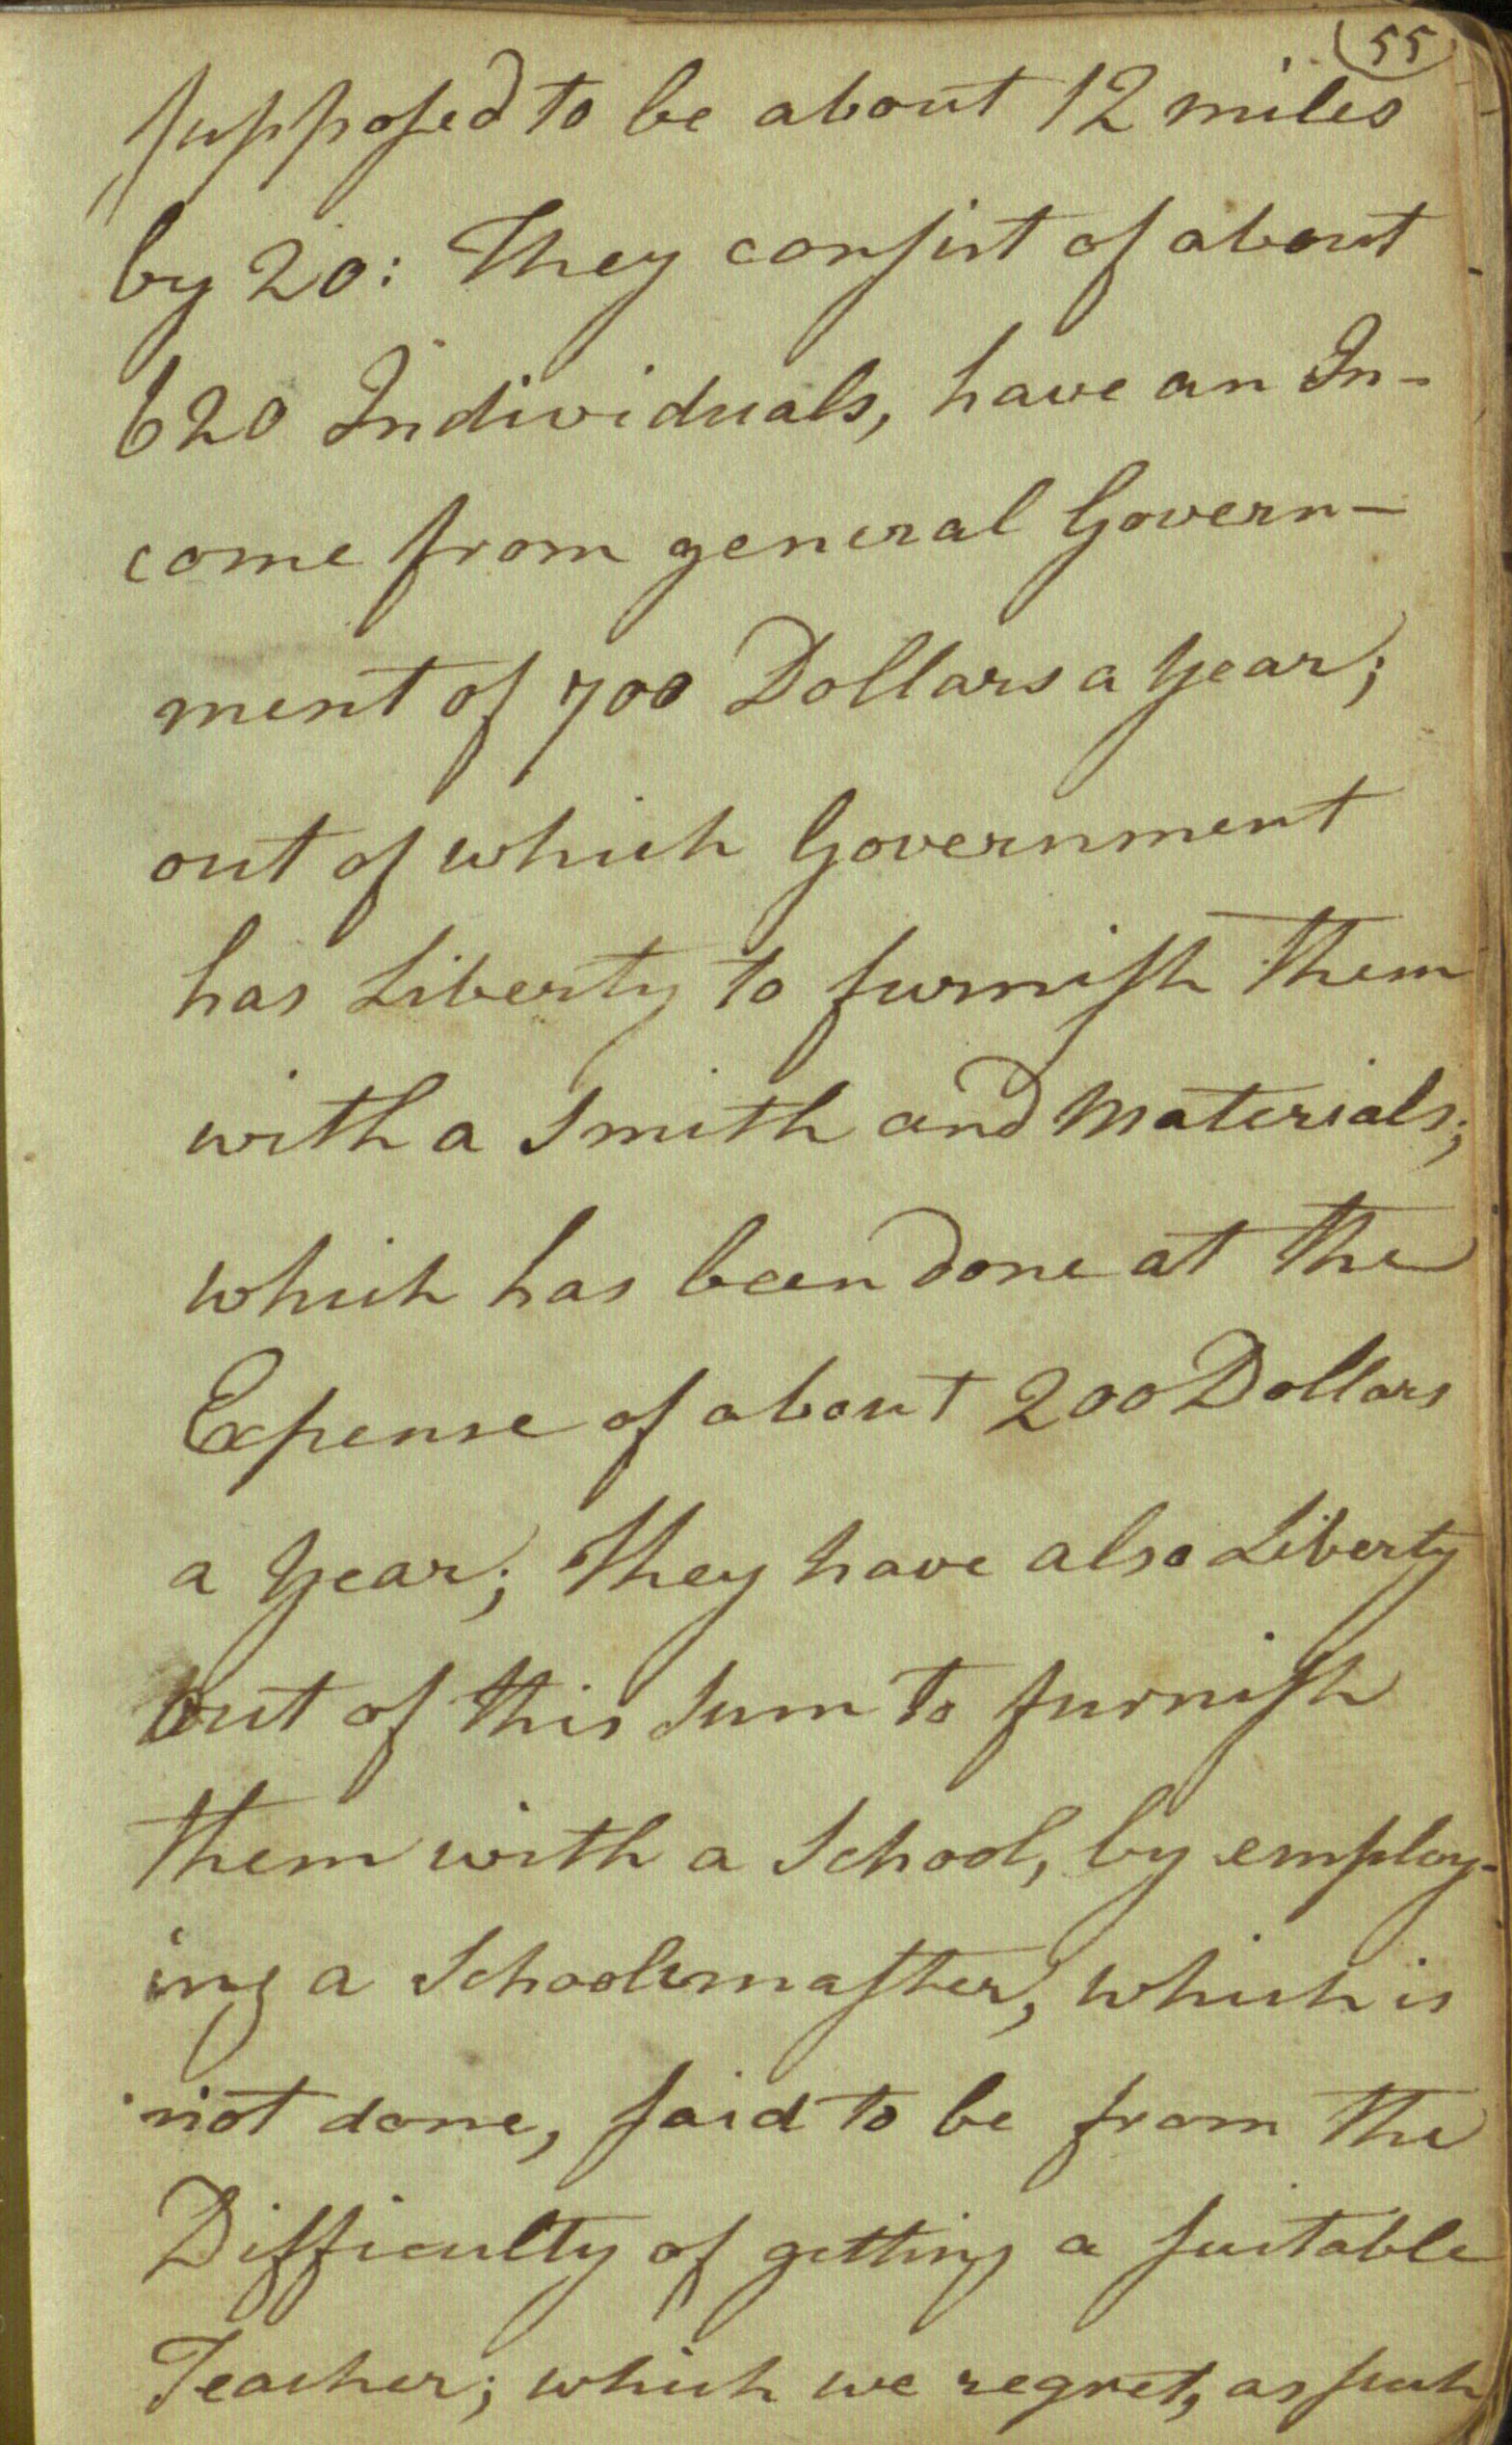 55
supposed to be about 12 miles
by 20: They consist of about
620 Individuals, have an In-
come from general Govern-
ment of 700 Dollars a Year;
out of which Government
has Liberty to furnish them
with a Smith and Materials;
which has been done at the
Expense of about 200 Dollars
a Year; They have also Liberty
out of this Sum to furnish
them with a School, by employ-
ing a Schoolmaster, which is
not done, said to be from the
Difficulty of getting a suitable
Teacher; which we regret, as such